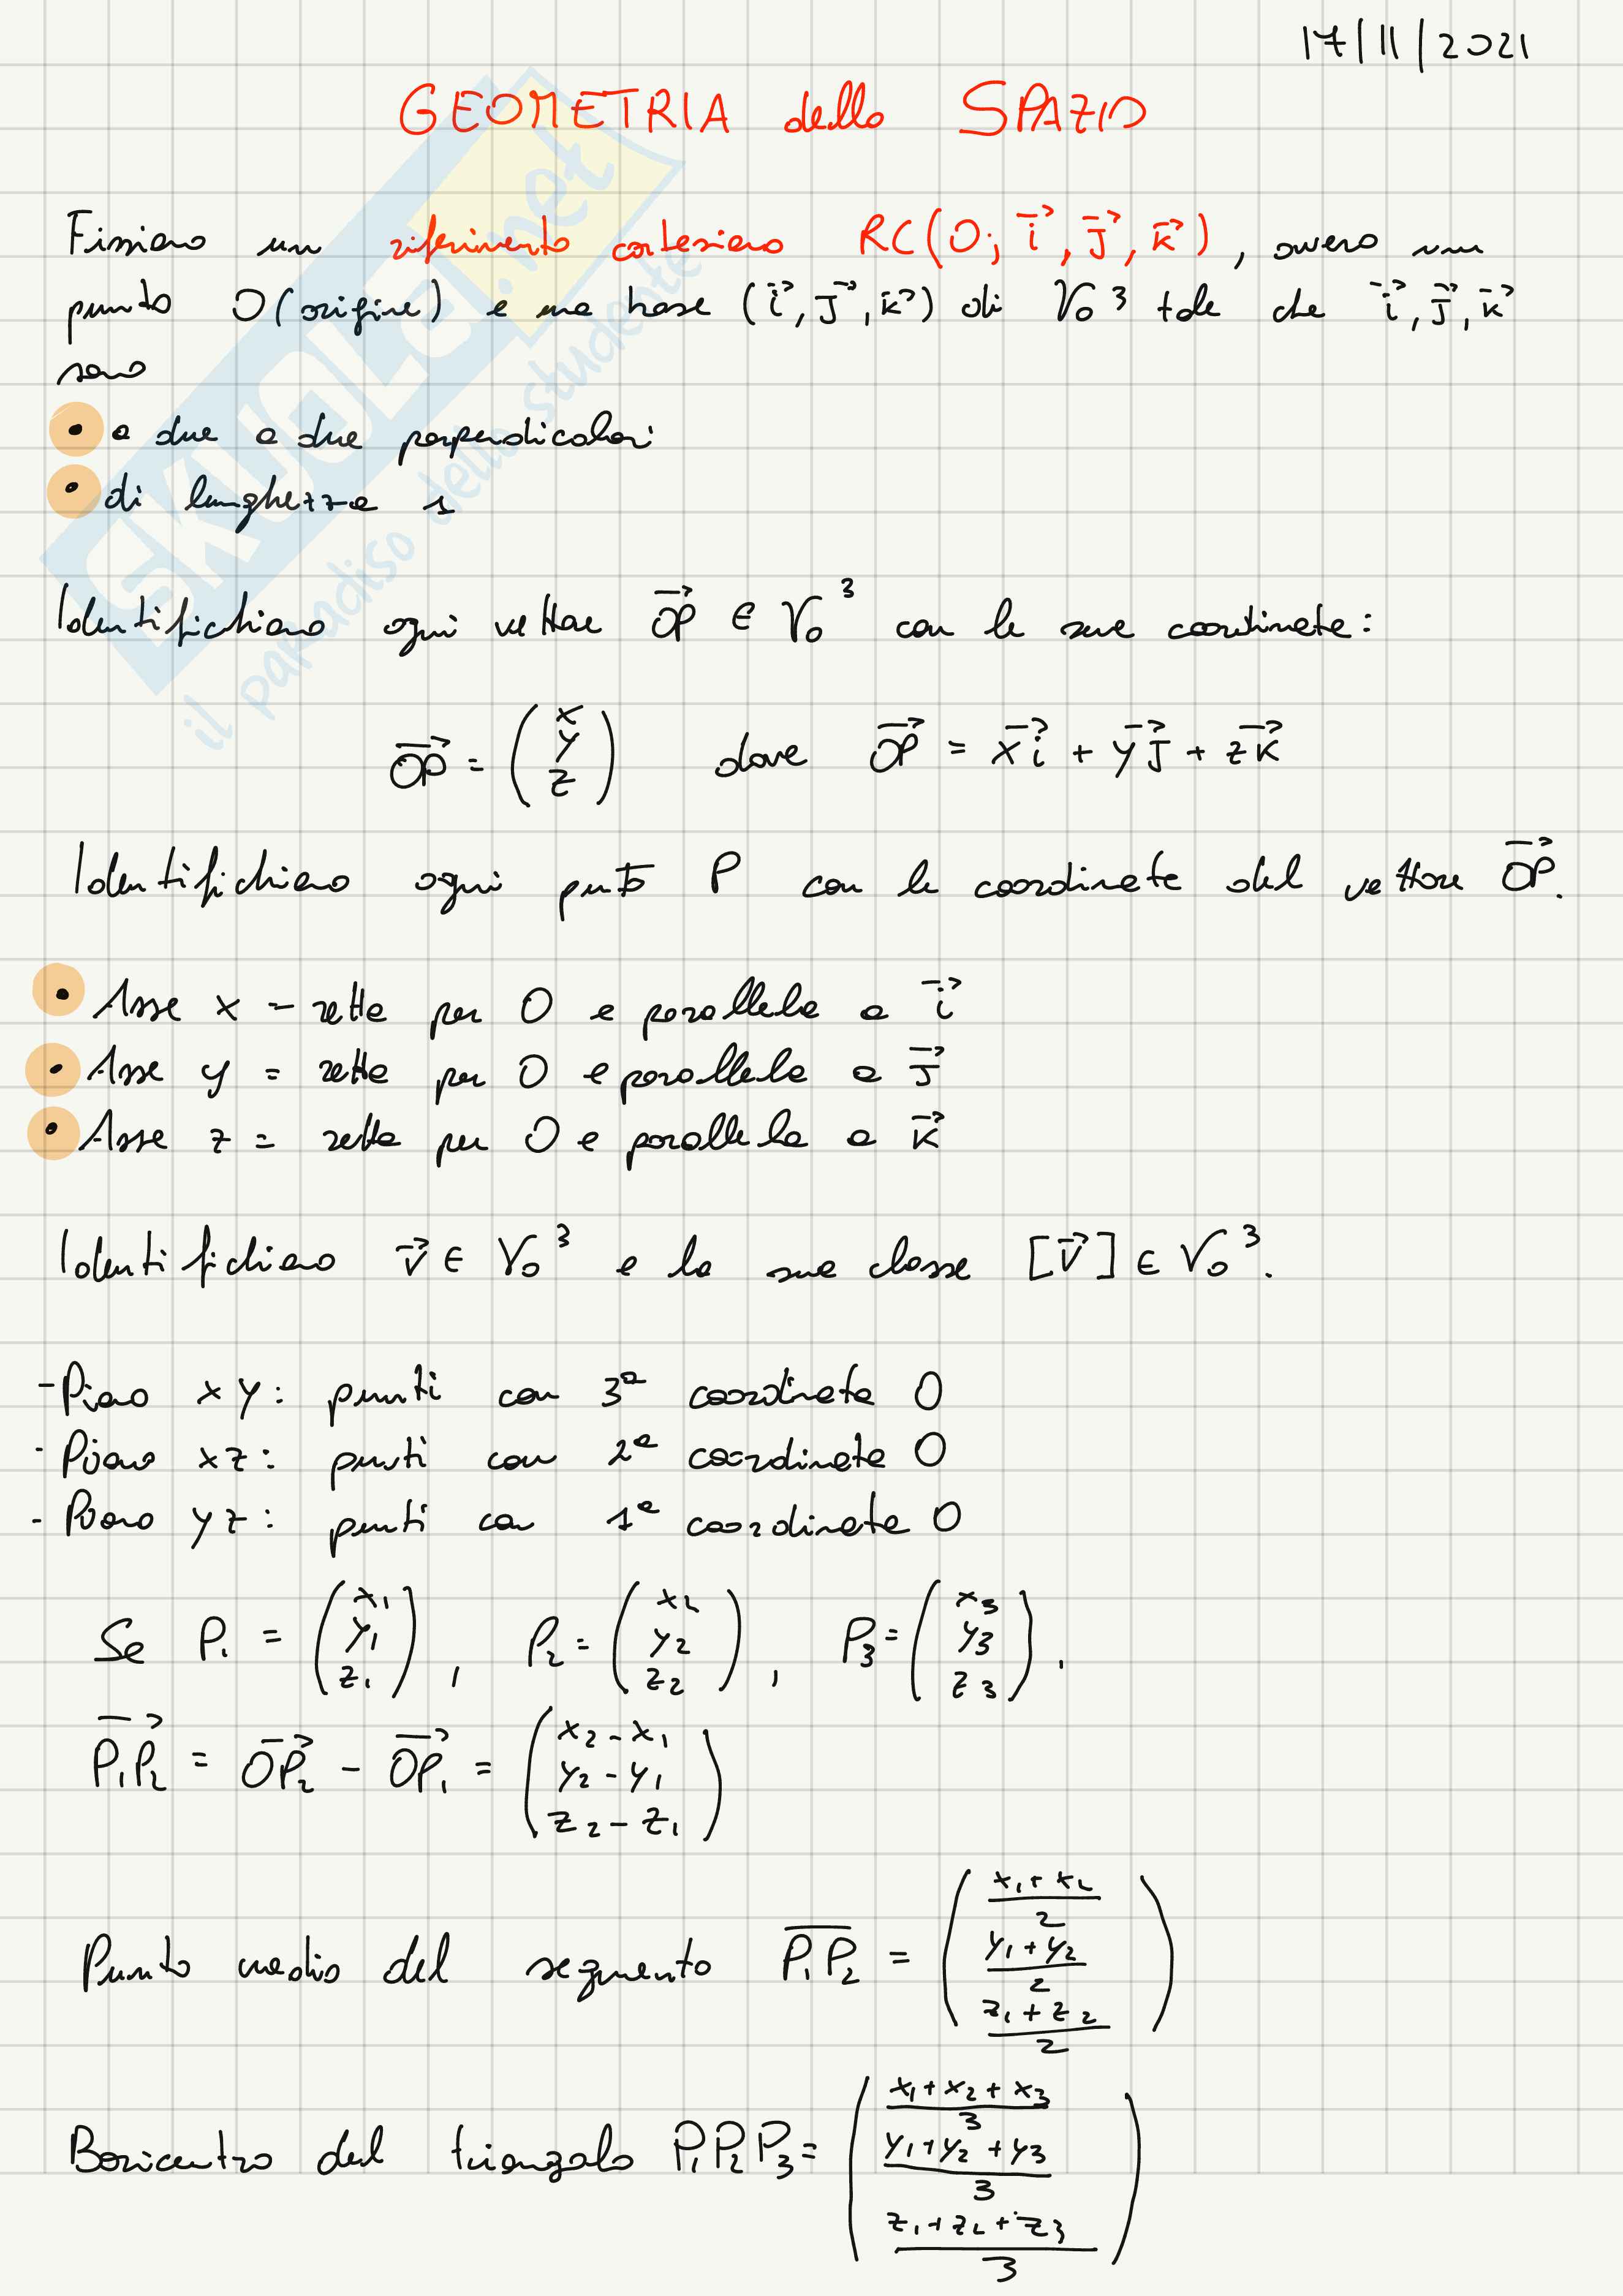 17/11/2021
GEOMETRIA dello SPAZIO
Fissiamo un riferimento cartesiano RC(O; i⃗, J⃗, K⃗), ovvero un
punto O (origine) e una base (i⃗, J⃗, K⃗) di V₀³ tale che i⃗, J⃗, K⃗
sono
• a due a due perpendicolari
• di lunghezza 1
Identifichiamo ogni vettore OP⃗ ∈ V₀³ con le sue coordinate:
OP⃗ = (x y z) dove OP⃗ = x i⃗ + y J⃗ + z K⃗
Identifichiamo ogni punto P con le coordinate del vettore OP⃗.
• Asse x = retta per O e parallela a i⃗
• Asse y = retta per O e parallela a J⃗
• Asse z = retta per O e parallela a K⃗
Identifichiamo v⃗ ∈ V₀³ e la sua classe [v⃗] ∈ V₀³.
- Piano xy: punti con 3ª coordinata 0
- Piano xz: punti con 2ª coordinata 0
- Piano yz: punti con 1ª coordinata 0
Se P₁ = (x₁ y₁ z₁), P₂ = (x₂ y₂ z₂), P₃ = (x₃ y₃ z₃).
P₁P₂⃗ = OP₂⃗ - OP₁⃗ = (x₂-x₁ y₂-y₁ z₂-z₁)
Punto medio del segmento P₁P₂ = ((x₁+x₂)/2 (y₁+y₂)/2 (z₁+z₂)/2)
Baricentro del triangolo P₁P₂P₃ = ((x₁+x₂+x₃)/3 (y₁+y₂+y₃)/3 (z₁+z₂+z₃)/3)
SKUOLa.net
il paradiso dello studente